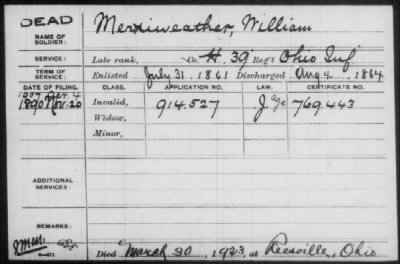 DEAD
NAME OF SOLDIER: Merriweather, William
SERVICE: Late rank, Co. H. 39 Reg't Ohio Inf
TERM OF SERVICE: Enlisted July 31. 1861 Discharged Aug 4, 1864
DATE OF FILING. CLASS. APPLICATION NO. LAW. CERTIFICATE NO.
1907 Apr. 4
1890 Nov. 20 Invalid, 914.527 J age 769.443
Widow,
Minor,
ADDITIONAL SERVICES:
REMARKS:
Died March 30, 1923, at Reesville, Ohio